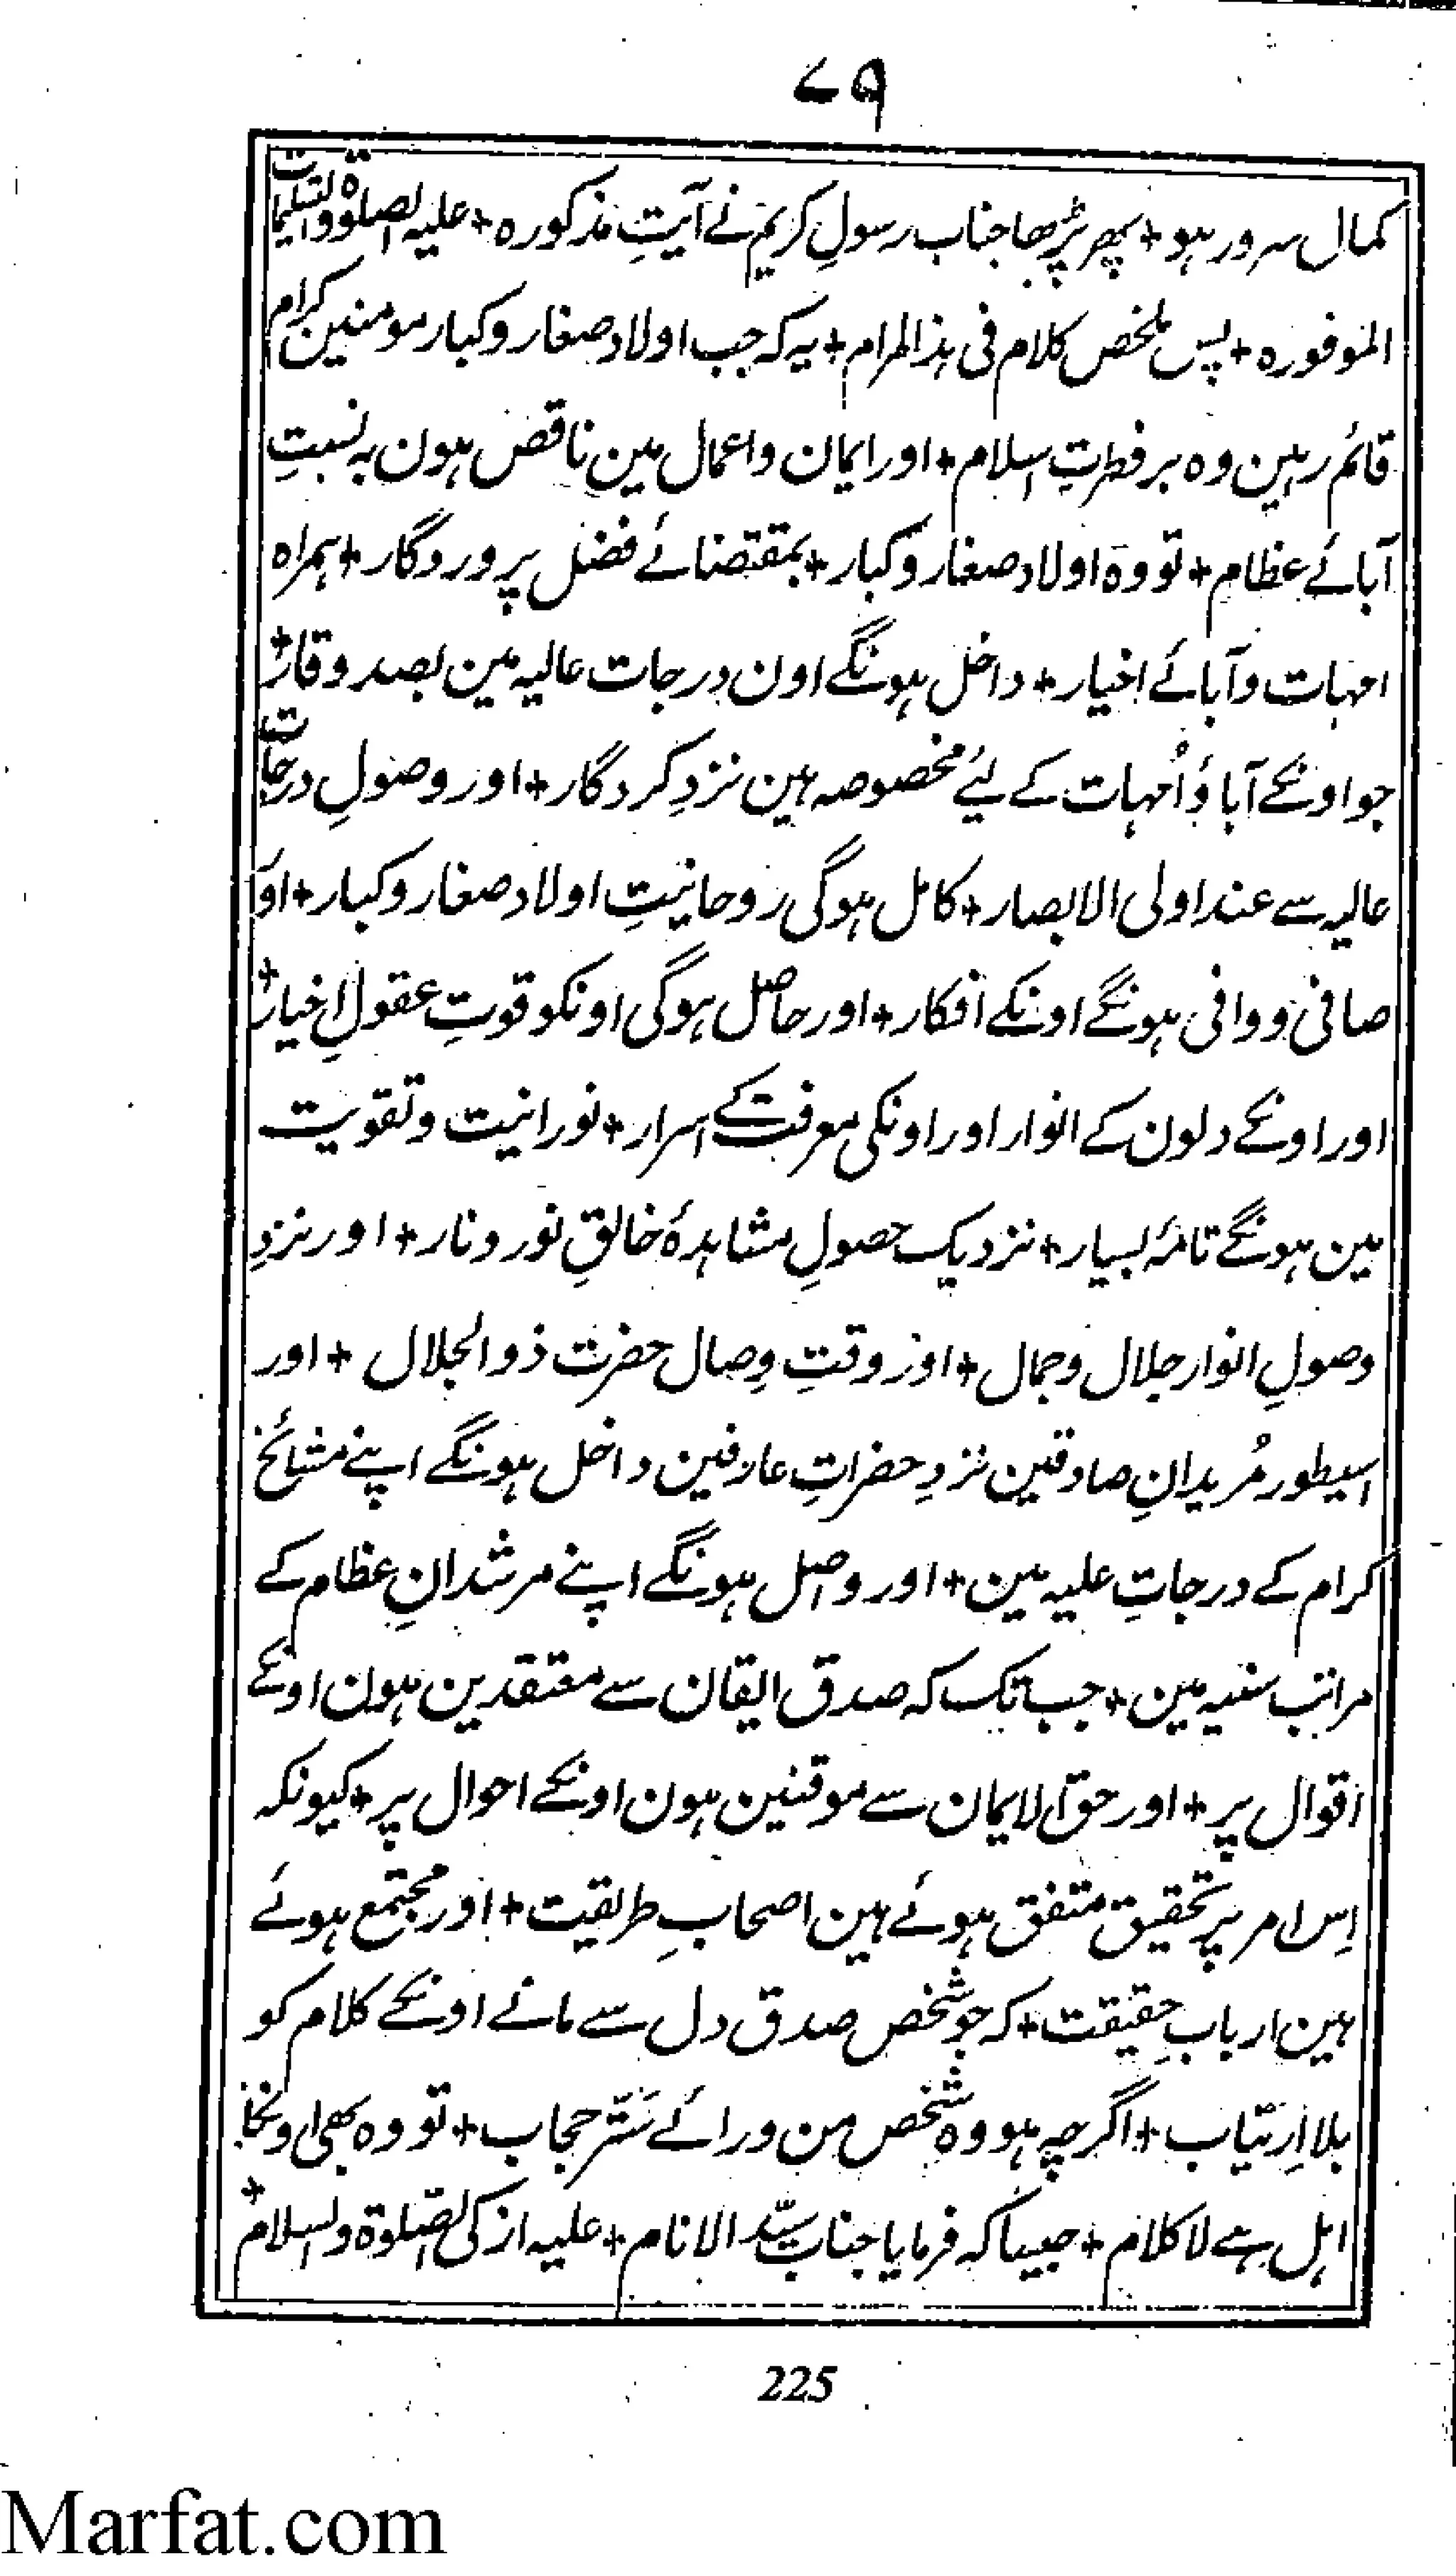 ۷۹
کمال سرور ہو + پھر پڑھا جناب رسولِ کریم نے آیتِ مذکورہ + علیہ الصلوٰۃ والتسلیمات
الموفورہ + پس ملخص کلام فی ہذا المرام + یہ کہ جب اولاد صغار و کبار مومنین کرام
قائم رہین وہ بر فطرتِ اسلام + اور ایمان و اعمال مین ناقص ہون بہ نسبتِ
آبائے عظام + تو وہ اولاد صغار و کبار + بمقتضائے فضل پروردگار + ہمراہ
امہات و آبائے اخیار + داخل ہونگے اون درجات عالیہ مین بصد وقار +
جو اونکے آبا و اُمہات کے لئے مخصوصہ ہین نزدِ کردگار + اور وصولِ درجات
عالیہ سے عند اولی الابصار + کامل ہوگی روحانیتِ اولاد صغار و کبار + اور
صافی و وافی ہونگے اونکے افکار + اور حاصل ہوگی اونکو قوتِ عقولِ اخیار +
اور اونکے دلون کے انوار اور اونکی معرفت کے اسرار + نورانیت و تقویت
مین ہونگے تامۂ بسیار + نزدیک حصولِ مشاہدۂ خالقِ نور و نار + اور نزدِ
وصولِ انوار جلال و جمال + اور وقتِ وِصال حضرت ذوالجلال + اور
اسیطور مُریدانِ صادقین نزدِ حضراتِ عارفین داخل ہونگے اپنے مشائخ
کرام کے درجاتِ علیہ مین + اور واصل ہونگے اپنے مرشدانِ عظام کے
مراتب سنیہ مین + جب تک کہ صدق ایقان سے معتقدین ہون اونکے
اقوال پر + اور حق الایمان سے موقنین ہون اونکے احوال پر + کیونکہ
اِس امر پر تحقیق متفق ہوئے ہین اصحابِ طریقیت + اور مجتمع ہوئے
ہین اربابِ حقیقت + کہ جو شخص صدق دل سے مانے اونکے کلام کو
بلا اِرتیاب + اگرچہ ہو وہ شخص من ورائے سَتر حجاب + تو وہ بھی اونکا
اہل ہے لا کلام + جیسا کہ فرمایا جناب سیّد الانام + علیہ ازکی الصّلوٰۃ والسلام +
225
Marfat.com